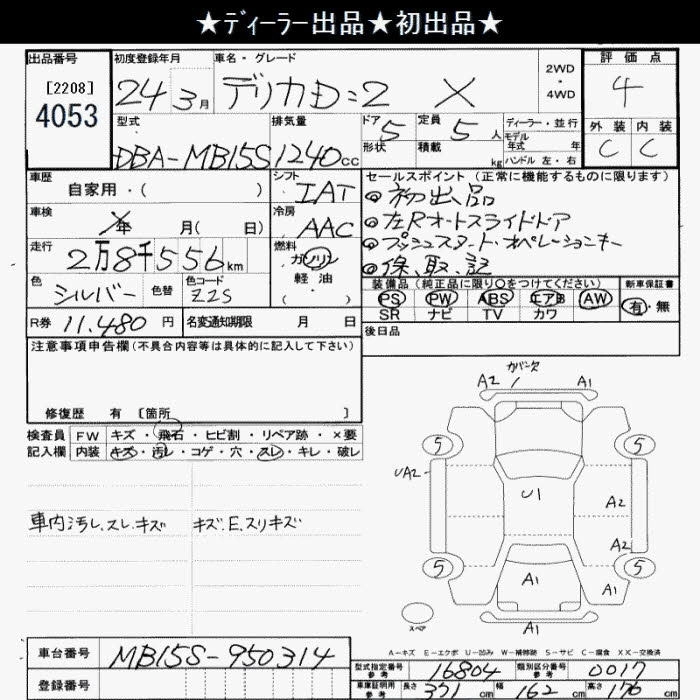 ★ディーラー出品★初出品★
出品番号 [2208] 4053
初度登録年月 24 3月
車名・グレード デリカD:2 X
2WD・4WD
評価点 4
外装 C 内装 C
型式 DBA-MB15S
排気量 1240cc
ドア 5 形状
定員 5人 積載 kg
ディーラー・並行
モデル年式 年
ハンドル 左・右
車歴 自家用・( )
シフト IAT
車検 年 月( 日)
冷房 AAC
走行 2万8千556km
燃料 ガソリン 軽油 ( )
色 シルバー 色替 色コード Z2S
R券 11.480円 名変通知期限 月 日
セールスポイント (正常に機能するものに限ります)
◎初出品
◎左Rオートスライドドア
◎プッシュスタート・オペレーションキー
◎保、取、記
装備品 (純正品に限り○をつけてください) 新車保証書
PS PW ABS エアB AW 有・無
SR ナビ TV カワ
後日品
注意事項申告欄 (不具合内容等は具体的に記入して下さい)
修復歴 有 [箇所 ]
検査員 FW キズ・飛石・ヒビ割・リペア跡・×要
記入欄 内装 キズ・汚レ・コゲ・穴・スレ・キレ・破レ
車内汚レ、スレ、キズ キズ、E、スリキズ
カバー欠
A2 A1
5 5
UA2 U1 A2
A2
5 5
A1 A1
スペア A1
A-キズ E-エクボ U-凹み W-補修跡 S-サビ C-腐食 XX-交換済
車台番号 MB15S-950314
型式指定番号 参考 16804 類別区分番号 参考 0017
登録番号
車庫証明用 参考 長さ 371cm 幅 162cm 高さ 176cm